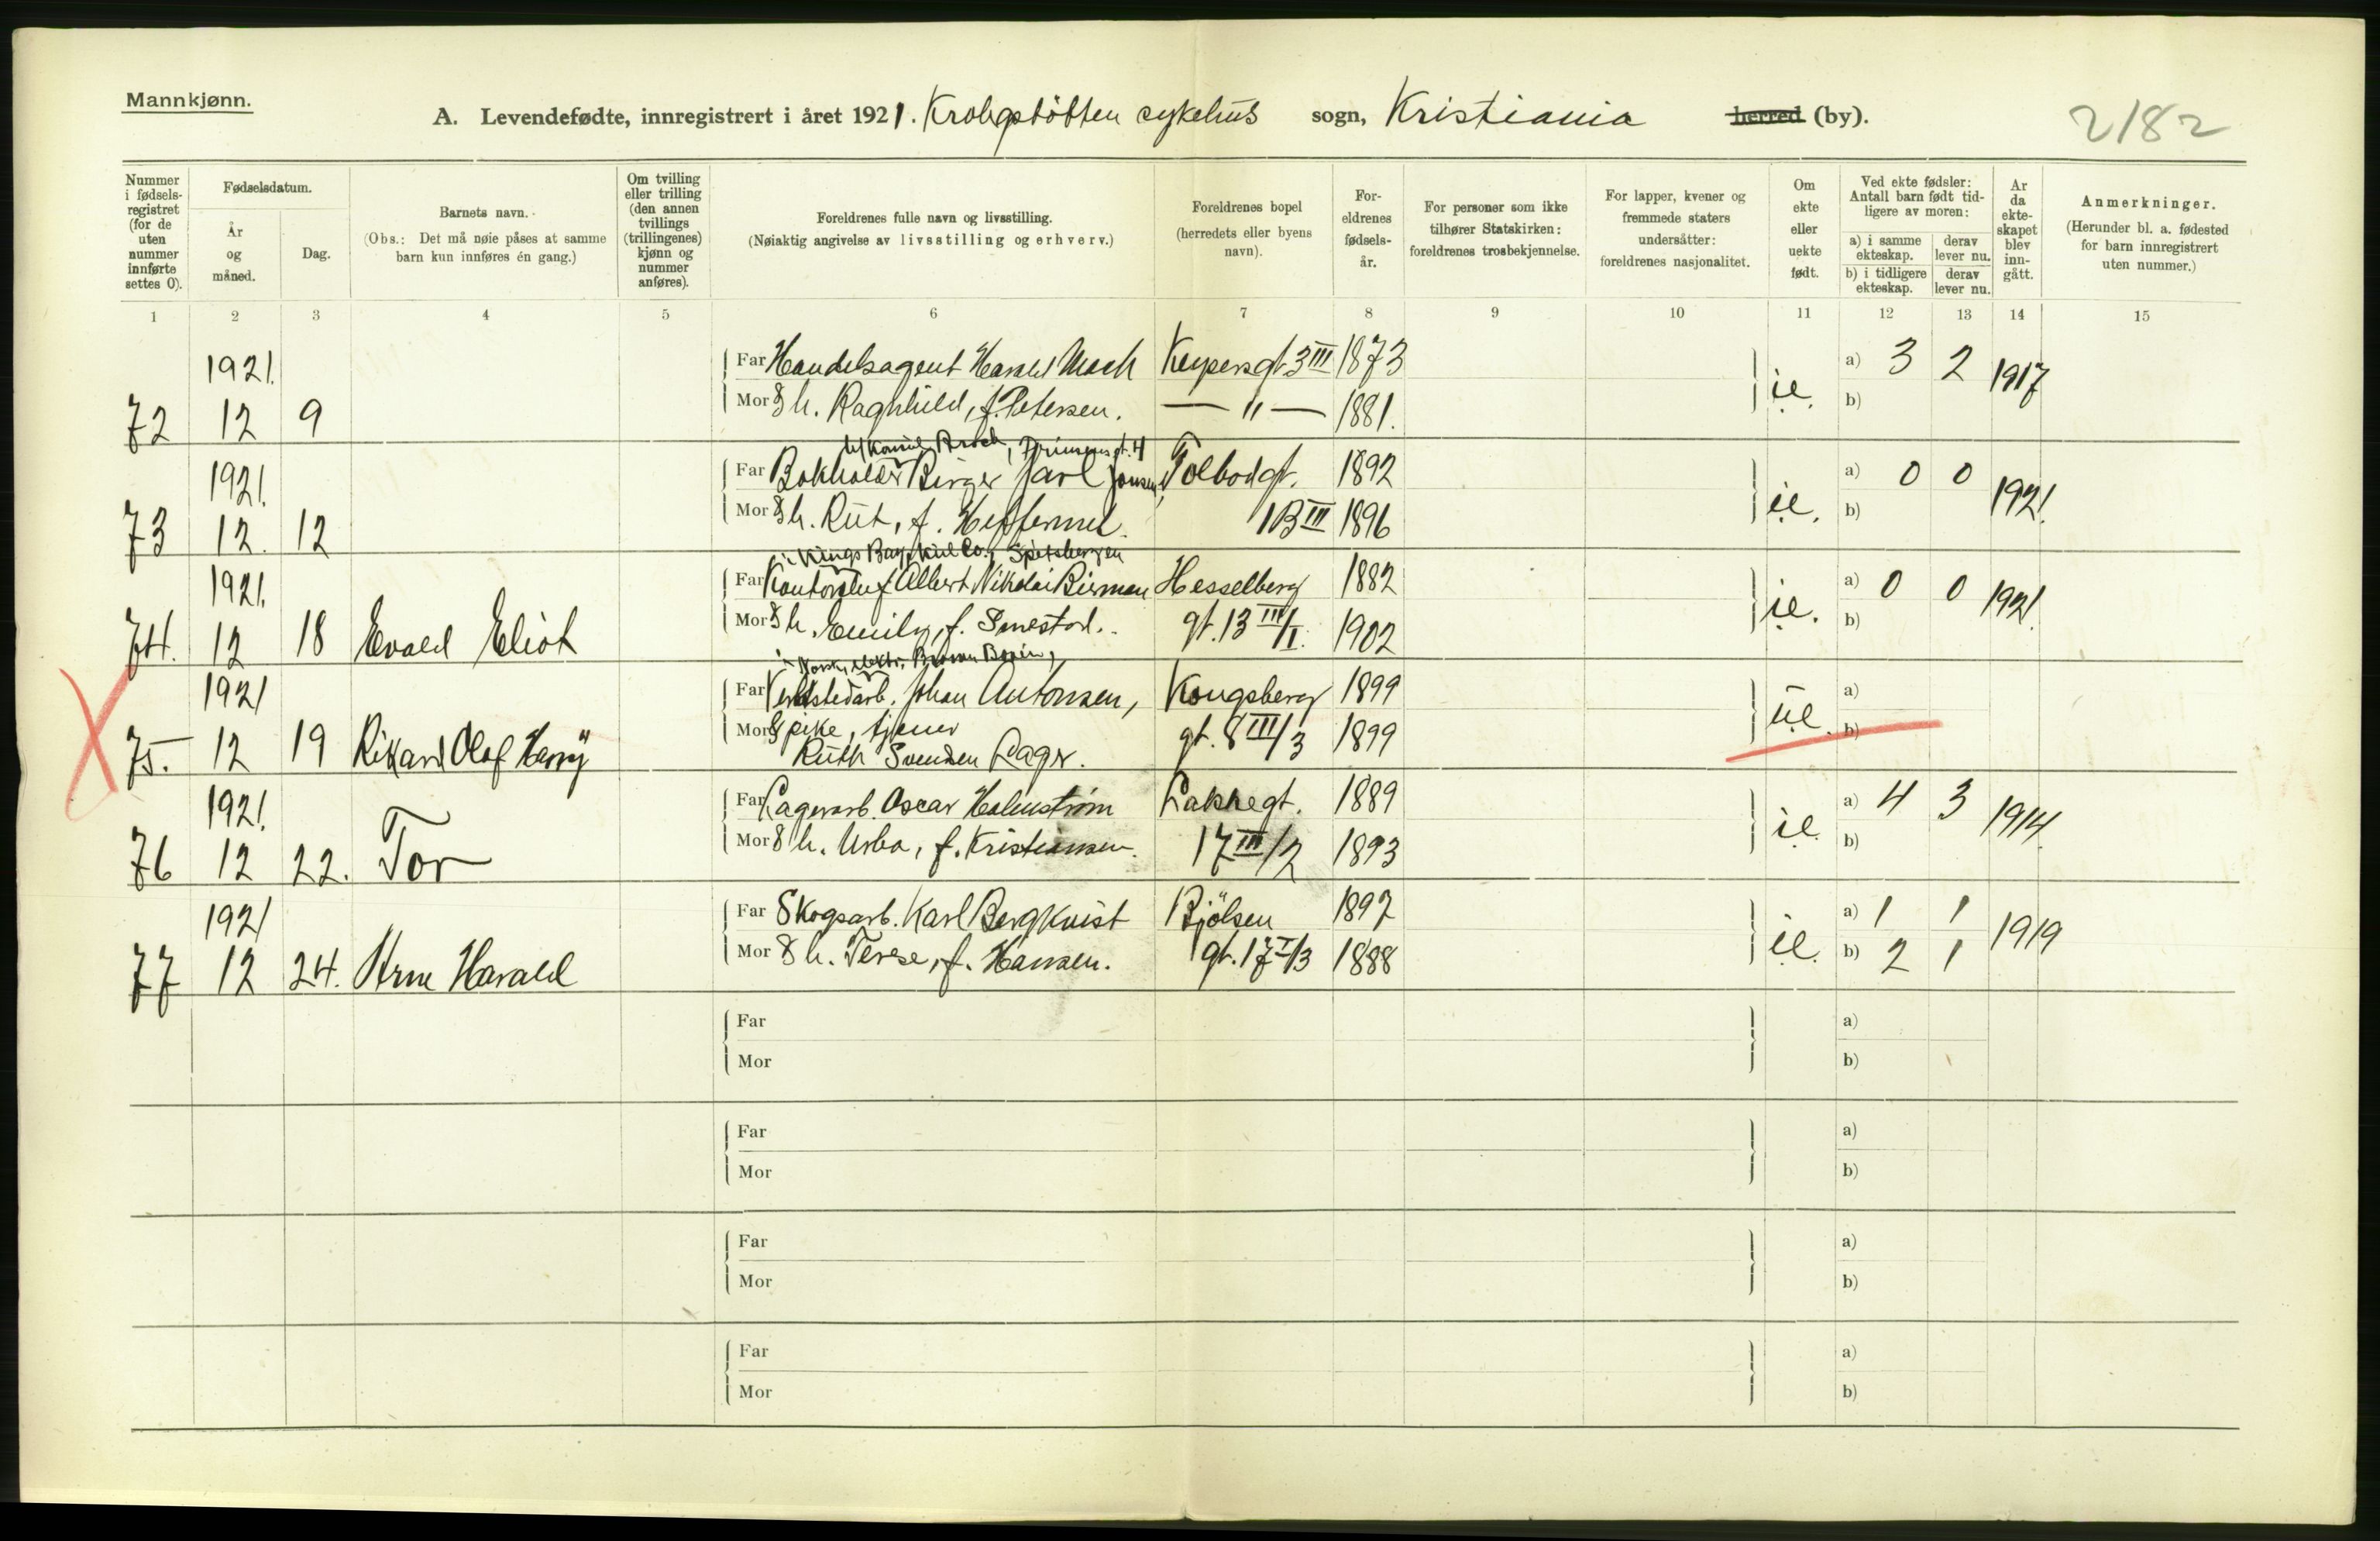 Mannkjønn.
A. Levendefødte, innregistrert i året 1921. Krohgstøtten sykehus sogn, Kristiania herred (by).
2182
Nummer i fødsels-registret (for de uten nummer innførte settes 0).
Fødselsdatum.
År og måned.
Dag.
Barnets navn.
(Obs.: Det må nøie påses at samme barn kun innføres én gang.)
Om tvilling eller trilling (den annen tvillings (trillingenes) kjønn og nummer anføres).
Foreldrenes fulle navn og livsstilling.
(Nøiaktig angivelse av livsstilling og erhverv.)
Foreldrenes bopel (herredets eller byens navn).
For-eldrenes fødsels-år.
For personer som ikke tilhører Statskirken: foreldrenes trosbekjennelse.
For lapper, kvener og fremmede staters undersåtter: foreldrenes nasjonalitet.
Om ekte eller uekte født.
Ved ekte fødsler: Antall barn født tid-ligere av moren:
a) i samme ekteskap.
derav lever nu.
b) i tidligere ekteskap.
derav lever nu.
År da ekte-skapet blev inn-gått.
Anmerkninger.
(Herunder bl. a. fødested for barn innregistrert uten nummer.)
1 2 3 4 5 6 7 8 9 10 11 12 13 14 15
1921. Far Handelsagent Harald Keysersgt. 3 III 1873 a) 3 2 1917
72 12 9 Mor Sh. Raghhild, f. Petersen. — " — 1881. ie. b)
Prinsensgt. 4
1921. Far Bokholder Birger Jarl Jonsen, Tolbodgt. 1892 a) 0 0 1921.
73 12. 12 Mor Sh. Rut, f. 1B III 1896 ie. b)
i Kings Bay Kul Co., Spitsbergen
1921. Far Albert Nikolai Hesselberg 1882 a) 0 0 1921.
74. 12 18 Evald Eliot Mor Sh. Emily, f. gt. 13 III/I. 1902 ie. b)
i Norsk elektr. Brown
1921 Far Verkstedarb. Johan Antonsen, Kongsberg 1899 a)
75. 12 19 Rikard Olaf Harry Mor Spike, tjener gt. 8 III/3 1899 ue. b)
Ruth Svendsen Lager.
1921. Far Lagerarb. Oscar Holmstrøm Lakkegt. 1889 a) 4 3 1914.
76 12 22. Tor Mor Sh. f. Kristiansen. 17 III/2 1893 ie. b)
1921 Far Skogsarb. Karl Bergkvist Bjölsen 1897 a) 1 1 1919
77 12 24. Arne Harald Mor Sh. Terese, f. Hansen. gt. 17 I/3 1888 ie. b) 2 1
Far a)
Mor b)
Far a)
Mor b)
Far a)
Mor b)
Far a)
Mor b)